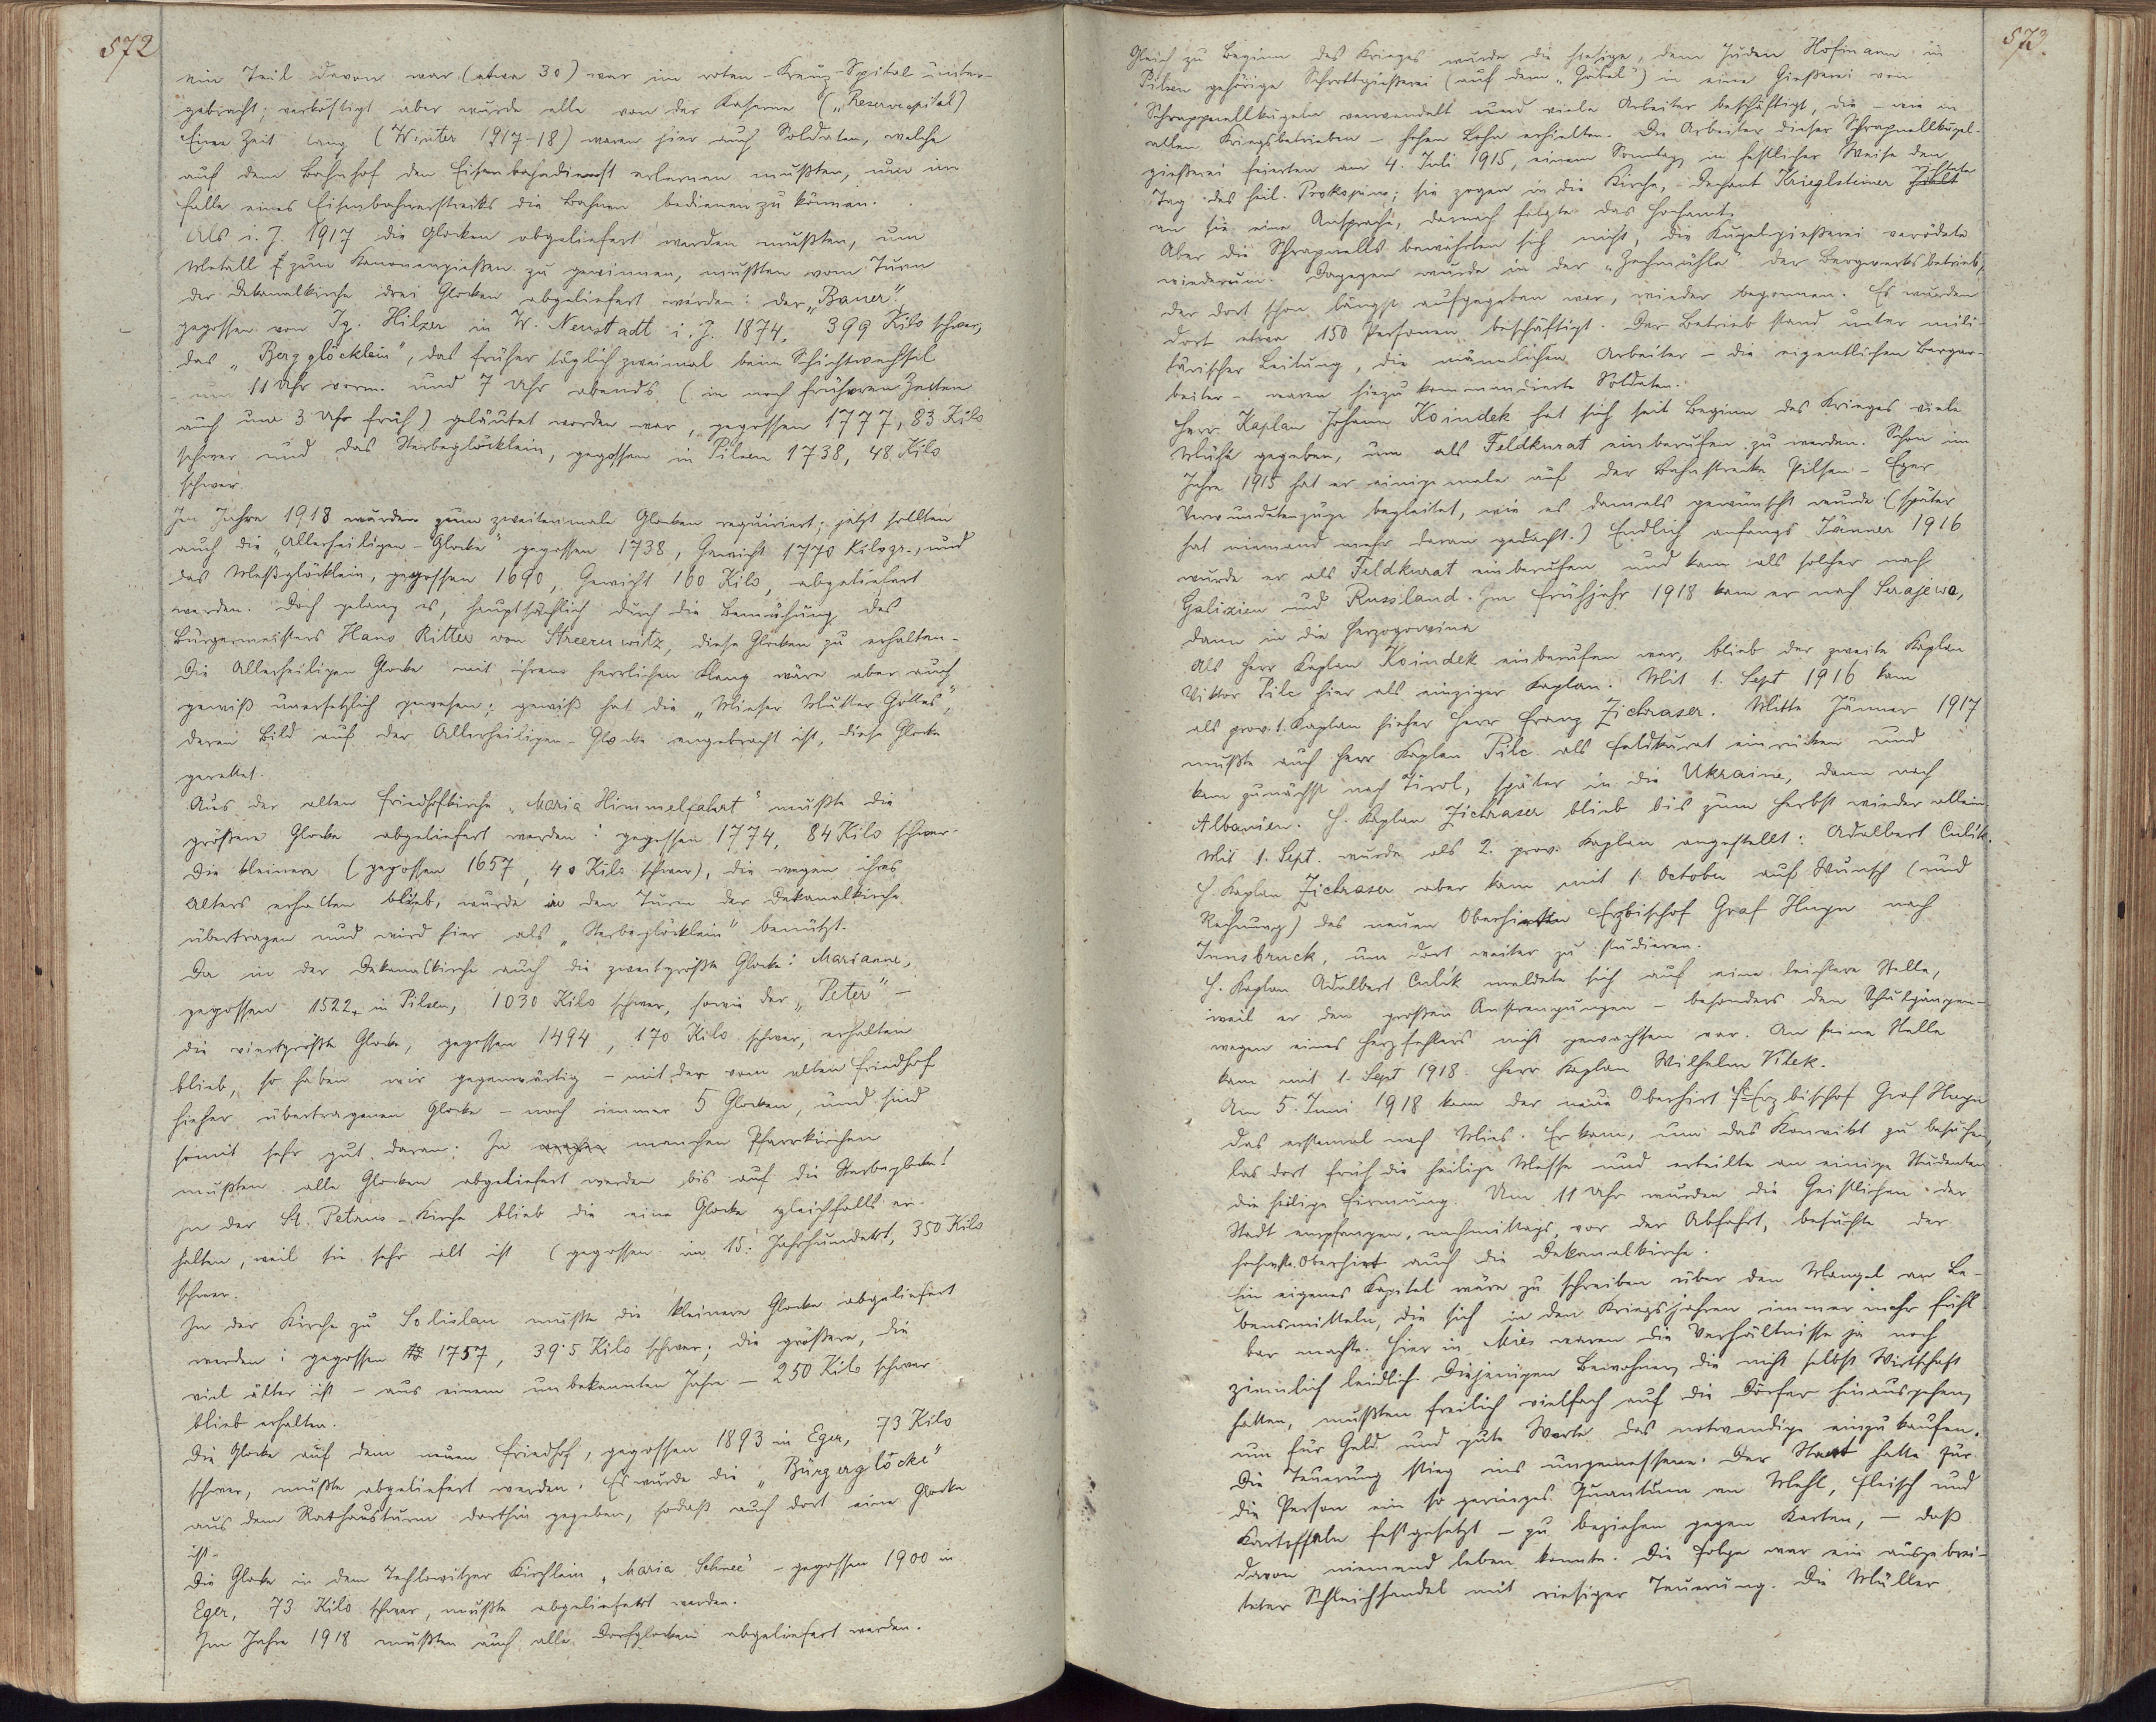 572
ein Teil davon war (etwa 30) war im roten-Kreuz-Spital unter-
gebracht; verköstigt aber wurde alle von der Kaserne („Reservespital")
Eine Zeit lang (Winter 1917-18) waren hier auch Soldaten, welche
auf dem Bahnhof den Eisenbahndienst erlernen mußten, um im
Falle eines Eisenbahnerstreiks die Bahnen bedienen zu können.
Als i. J. 1917 die Glocken abgeliefert werden mußten, um
Metall zum Kanonengießen zu gewinnen, mußten vom Turm
der Dekanalkirche drei Glocken abgeliefert werden: der „Bauer",
gegossen von Ig. Hilzer in W. Neustadt i. J. 1874, 399 Kilo schwer,
das „Bergglöcklein", das früher täglich zweimal beim Schichtwechsel
- um 11 Uhr vorm. und 7 Uhr abends (in noch früheren Zeiten
auch um 3 Uhr früh) geläutet worden war, gegossen 1777, 83 Kilo
schwer und das Sterbeglöcklein, gegossen in Pilsen 1738, 48 Kilo
schwer.
Im Jahre 1918 wurden zum zweitenmale Glocken requiriert; jetzt sollten
auch die „Allerheiligen-Glocke" gegossen 1738, Gewicht 1770 Kilogr., und
das Meßglöcklein, gegossen 1690, Gewicht 160 Kilo, abgeliefert
werden. Doch gelang es, hauptsächlich durch die Bemühung des
Bürgermeisters Hans Ritter von Streeruwitz, diese Glocken zu erhalten.
Die Allerheiligen Glocke mit ihrem herrlichen Klang wäre aber auch
gewiß unersetzlich gewesen; gewiß hat die „Mieser Mutter Gottes",
deren Bild auf der Allerheiligen-Glocke angebracht ist, diese Glocke
gerettet.
Aus der alten Friedhofkirche „Maria Himmelfahrt" mußte die
größere Glocke abgeliefert werden: gegossen 1774, 84 Kilo schwer.
Die kleinere (gegossen 1657, 40 Kilo schwer), die wegen ihres
Alters erhalten blieb, wurde in den Turm der Dekanalkirche
übertragen und wird hier als „Sterbeglöcklein" benützt.
Da in der Dekanalkirche auch die zweitgrößte Glocke: Marianne,
gegossen 1522 in Pilsen, 1030 Kilo schwer, sowie der „Peter" -
die viertgrößte Glocke, gegossen 1494, 170 Kilo schwer, erhalten
blieb, so haben wir gegenwärtig - mit der vom alten Friedhof
hieher übertragenen Glocke - noch immer 5 Glocken, und sind
somit sehr gut daran: In manchen Pfarrkirchen
mußten alle Glocken abgeliefert werden bis auf die Sterbeglocke!
In der St. Petrus-Kirche blieb die eine Glocke gleichfalls er-
halten, weil sie sehr alt ist (gegossen im 15. Jahrhundert, 350 Kilo
schwer.
In der Kirche zu Solislau mußte die kleinere Glocke abgeliefert
werden: gegossen 1757, 39·5 Kilo schwer; die größere, die
viel älter ist - aus einem unbekannten Jahre - 250 Kilo schwer
blieb erhalten.
Die Glocke auf dem neuen Friedhof, gegossen 1893 in Eger, 73 Kilo
schwer, mußte abgeliefert werden. Es wurde die „Bürgerglocke"
aus dem Rathausturm dorthin gegeben, sodaß auch dort eine Glocke
ist.
Die Glocke in dem Techlowitzer Kirchlein „Maria Schnee" - gegossen 1900 in
Eger, 73 Kilo schwer, mußte abgeliefert werden.
Im Jahre 1918 mußten auch alle Dorfglocken abgeliefert werden.
573.
Gleich zu Beginn des Krieges wurde die hiesige, dem Juden Hofmann in
Pilsen gehörige Schrottgießerei (auf dem „Gabel") in eine Gießerei von
Schrappnellkugeln verwandelt und viele Arbeiter beschäftigt, die - wie in
allen Kriegsbetrieben - hohen Lohn erhielten. Die Arbeiter dieser Schrapnellkugel-
gießerei feierten am 4. Juli 1915, einem Sonntag, in festlicher Weise den
Tag des heil. Prokopius; sie zogen in die Kirche, Dechant Krieglsteiner richtete
an sie eine Ansprache, darnach folgte das Hochamt.
Aber die Schrapnells bewährten sich nicht, die Kugelgießerei verödete
wiederum. Dagegen wurde in der „Zechmühle" der Bergwerksbetrieb,
der dort schon längst aufgegeben war, wieder begonnen. Es wurden
dort etwa 150 Personen beschäftigt. Der Betrieb stand unter mili-
tärischer Leitung, die männlichen Arbeiter - die eigentlichen Bergar-
beiter - waren hiezu kommandierte Soldaten.
Herr Kaplan Johann Koindek hat sich seit Beginn des Krieges viele
Mühe gegeben, um als Feldkurat einberufen zu werden. Schon im
Jahre 1915 hat er einigemale auf der Bahnstrecke Pilsen - Eger
Verwundetenzüge begleitet, wie es damals gewünscht wurde (später
hat niemand mehr daran gedacht.) Endlich anfangs Jänner 1916
wurde er als Feldkurat einberufen und kam als solcher nach
Galizien und Russland. Im Frühjahr 1918 kam er nach Serajewo,
dann in die Herzogowina
Als Herr Kaplan Koindek einberufen war, blieb der zweite Kaplan
Viktor Pilc hier als einziger Kaplan. Mit 1. Sept 1916 kam
als prov. 1. Kaplan hieher Herr Franz Zichraser. Mitte Jänner 1917
mußte auch Herr Kaplan Pilc als Feldkurat einrücken und
kam zunächst nach Tirol, später in die Ukraine, dann nach
Albanien. H. Kaplan Zichraser blieb bis zum Herbst wieder allein.
Mit 1. Sept. wurde als 2. prov. Kaplan angestellt: Adalbert Culik.
H. Kaplan Zichraser aber kam mit 1. October auf Wunsch (und
Rechnung) des neuen Oberhirten Erzbischof Graf Huyn nach
Innsbruck, um dort weiter zu studieren.
H. Kaplan Adalbert Culik meldete sich auf eine leichtere Stelle,
weil er den großen Anstrengungen - besonders den Schulgängen -
wegen eines Herzfehlers nicht gewachsen war. An seine Stelle
kam mit 1. Sept 1918. Herr Kaplan Wilhelm Vitek.
Am 5. Juni 1918 kam der neue Oberhirt Erzbischof Graf Huyn
das erstemal nach Mies. Er kam, um das Konvikt zu besuchen,
las dort früh die heilige Messe und erteilte an einige Studenten
die heilige Firmung. Um 11 Uhr wurden die Geistlichen der
Stadt empfangen, nachmittags, vor der Abfahrt, besuchte der
hochwste. Oberhirt auch die Dekanalkirche.
Ein eigenes Kapitel wäre zu schreiben über den Mangel an Le-
bensmitteln, die sich in den Kriegsjahren immer mehr fühl
bar machte. Hier in Mies waren die Verhältnisse ja noch
ziemlich leidlich. Diejenigen Bewohner, die nicht selbst Wirtschaft
hatten, mußten freilich vielfach auf die Dörfer hinausgehen,
um für Geld und gute Worte das notwendige einzukaufen.
Die Teuerung stieg ins ungemessene. Der Staat hatte für
die Person ein so geringes Quantum an Mehl, Fleisch und
Kartoffeln festgesetzt - zu beziehen gegen Karten, - daß
davon niemand leben konnte. Die Folge war ein ausgebrei-
teter Schleichhandel mit riesiger Teuerung. Die Müller